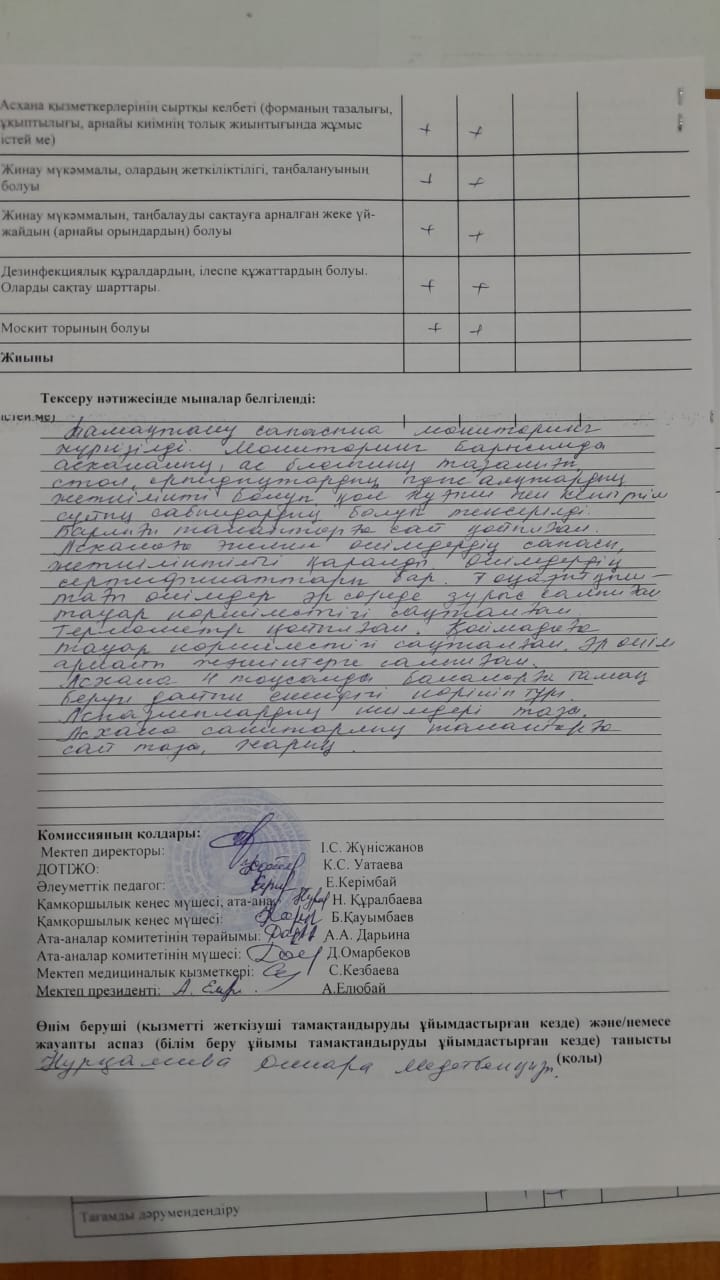 Асхана қызметкерлерінің сыртқы келбеті (форманың тазалығы,
ұқыптылығы, арнайы киімнің толық жиынтығында жұмыс
істей ме) + +
Жинау мүкәммалы, олардың жеткіліктілігі, таңбалануының
болуы + +
Жинау мүкәммалын, таңбалауды сақтауға арналған жеке үй-
жайдың (арнайы орындардың) болуы + +
Дезинфекциялық құралдардың, ілеспе құжаттардың болуы.
Оларды сақтау шарттары. + +
Москит торының болуы + +
Жиыны
Тексеру нәтижесінде мыналар белгіленді:
істей ме)
Тамақтану сапасына мониторинг
жүргізілді. Мониторинг барысында
асхананың, ас блогының тазалығы,
стол, орындықтардың
жеткілікті болуы, қол жууға
сұйық сабындардың болуы тексерілді.
Барлығы талаптарға сай қойылған.
Асханаға өнімдердің сапасы,
жеткіліктілігі қаралды. Өнімдердің
сертификаттары бар. Тоңазытқыш-
тағы өнімдер әр сөреде дұрыс салынған
тауар көршілестігі сақталған.
Термометр қойылған. Қоймадағы
тауар көршілестігі сақталған. Әр өнім
арнайы жәшіктерге салынған.
Асхана 4 тоқсанды балаларға тамақ
беруге дайын екендігі көрініп тұр.
Аспазшылардың киімдері таза.
Асхана санитарлық талаптарға
сай таза, жарық.
Комиссияның қолдары:
Мектеп директоры: І.С. Жүнісжанов
ДОТІЖО: К.С. Уатаева
Әлеуметтік педагог: Е.Керімбай
Қамқоршылық кеңес мүшесі, ата-ана Н. Құралбаева
Қамқоршылық кеңес мүшесі: Б.Қауымбаев
Ата-аналар комитетінің төрайымы: А.А. Дарьина
Ата-аналар комитетінің мүшесі: Д.Омарбеков
Мектеп медициналық қызметкері: С.Кезбаева
Мектеп президенті: А.Елюбай
Өнім беруші (қызметті жеткізуші тамақтандыруды ұйымдастырған кезде) және/немесе
жауапты аспаз (білім беру ұйымы тамақтандыруды ұйымдастырған кезде) танысты
(қолы)
Тағамды дәрумендендіру + +